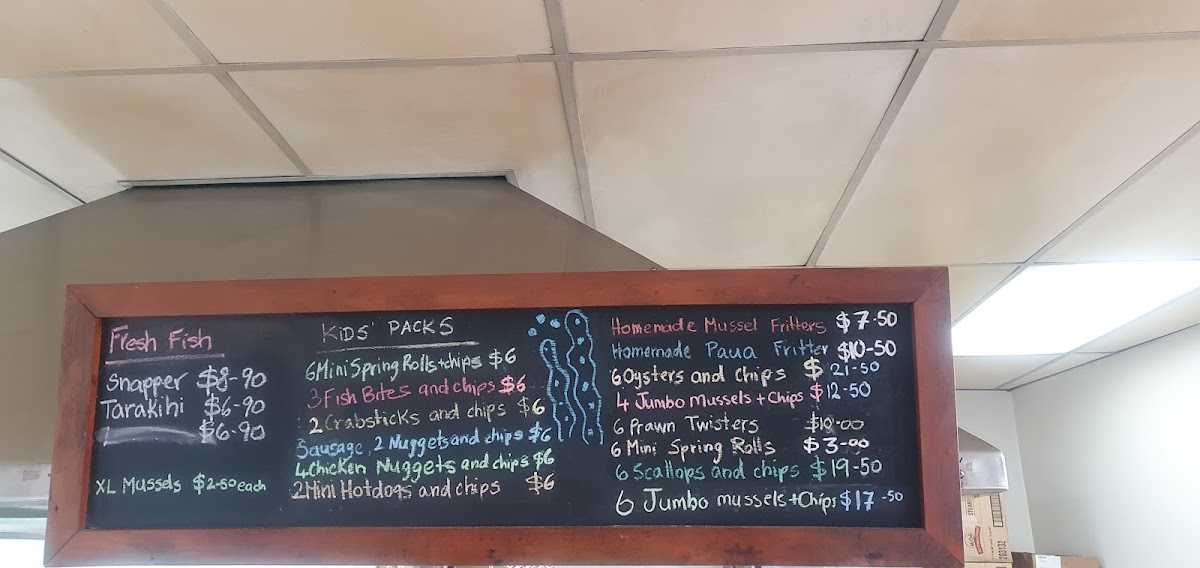 Fresh Fish
Snapper $8-90
Tarakihi $6-90
$6-90
XL Mussels $2-50 each
KIDS' PACKS
6 Mini Spring Rolls + chips $6
3 Fish Bites and chips $6
2 Crabsticks and chips $6
Sausage, 2 Nuggets and chips $6
4 Chicken Nuggets and chips $6
2 Mini Hotdogs and chips $6
Homemade Mussel Fritters $7.50
Homemade Paua Fritter $10-50
6 Oysters and chips $21-50
4 Jumbo Mussels + Chips $12-50
6 Prawn Twisters $10-00
6 Mini Spring Rolls $3-00
6 Scallops and chips $19-50
6 Jumbo mussels + Chips $17-50